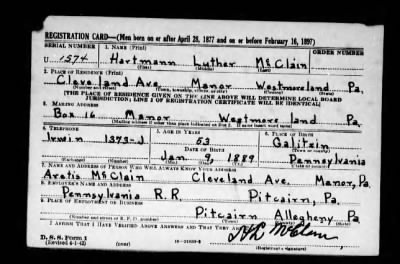 REGISTRATION CARD—(Men born on or after April 28, 1877 and on or before February 16, 1897)
SERIAL NUMBER 1. NAME (Print)
U 1574 Hartmann Luther McClain
(First) (Middle) (Last)
2. PLACE OF RESIDENCE (Print)
Cleveland Ave. Manor Westmoreland Pa.
(Number and street) (Town, township, village, or city) (County) (State)
[THE PLACE OF RESIDENCE GIVEN ON THE LINE ABOVE WILL DETERMINE LOCAL BOARD
JURISDICTION; LINE 2 OF REGISTRATION CERTIFICATE WILL BE IDENTICAL]
3. MAILING ADDRESS
Box 16 Manor Westmoreland Pa.
[Mailing address if other than place indicated on line 2. If same insert word same]
4. TELEPHONE 5. AGE IN YEARS 6. PLACE OF BIRTH
Irwin 1373-J 53 Galitzin
DATE OF BIRTH (Town or county)
Jan 9, 1889 Pennsylvania
(Exchange) (Number) (Mo.) (Day) (Yr.) (State or country)
7. NAME AND ADDRESS OF PERSON WHO WILL ALWAYS KNOW YOUR ADDRESS
McClain Cleveland Ave. Manor, Pa.
8. EMPLOYER'S NAME AND ADDRESS
Pennsylvania R.R. Pitcairn, Pa.
9. PLACE OF EMPLOYMENT OR BUSINESS
Pitcairn Allegheny Pa
(Number and street or R. F. D. number) (Town) (County) (State)
I AFFIRM THAT I HAVE VERIFIED ABOVE ANSWERS AND THAT THEY ARE
D. S. S. Form 1
(Revised 4-1-42) (over) (Registrant's signature)